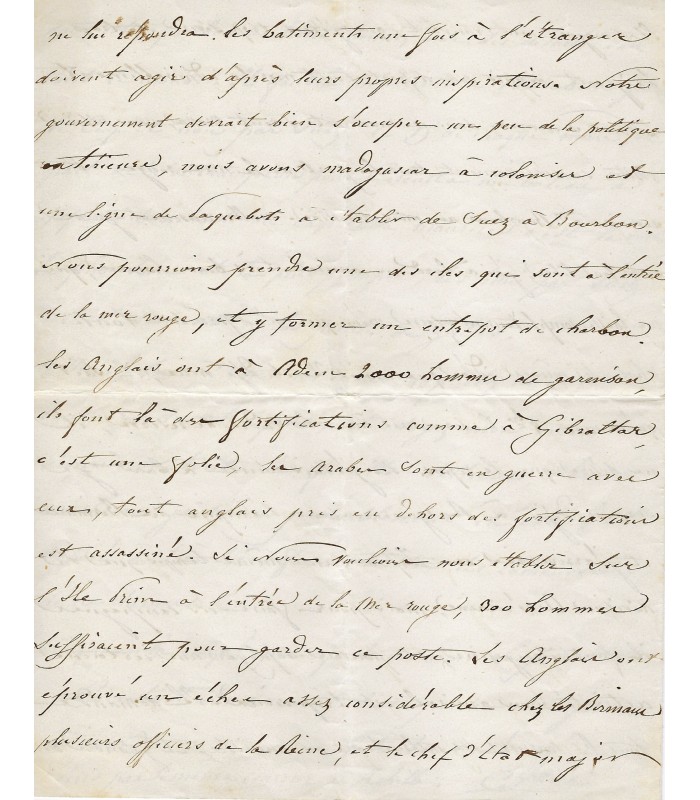 ne lui répondra. les batiments une fois à l'étranger
doivent agir d'après leurs propres inspirations. Notre
gouvernement devrait bien s'occuper un peu de la politique
extérieure, nous avons madagascar à coloniser et
une ligne de Paquebots à établir de Suez à Bourbon.
Nous pourrions prendre une des iles qui sont à l'entrée
de la mer rouge, et y former un entrepot de charbon.
les Anglais ont à Aden 2000 hommes de garnison,
ils font là des fortifications comme à Gibraltar,
c'est une folie, les arabes sont en guerre avec
eux, tout anglais pris en dehors des fortifications
est assassiné. Si Nous voulions nous établir sur
l'Ile Prim à l'entrée de la Mer rouge, 300 hommes
suffiraient pour garder ce poste. Les Anglais ont
éprouvé un échec assez considérable chez les Birmans
plusieurs officiers de la Reine, et le chef d'état major